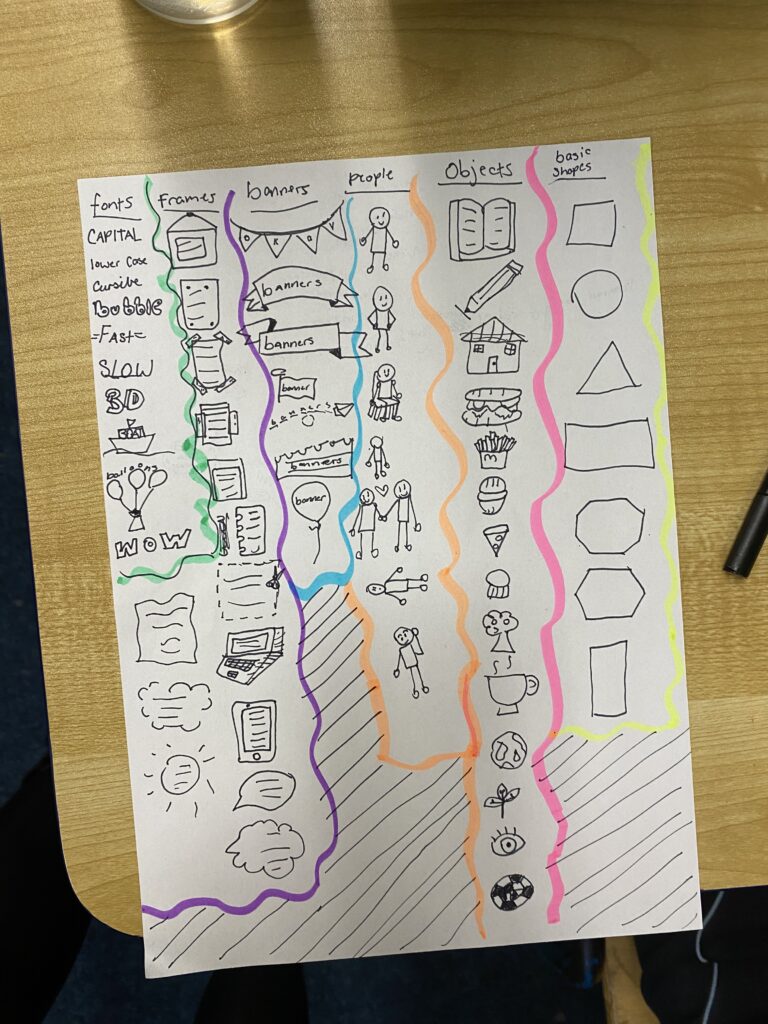 fonts
CAPITAL
lower case
cursive
Bubble
=FAST=
SLOW
3D
BOAT
WOW
Frames
banners
banners
banners
banner
banners
banners
banner
people
Objects
M
basic
shapes